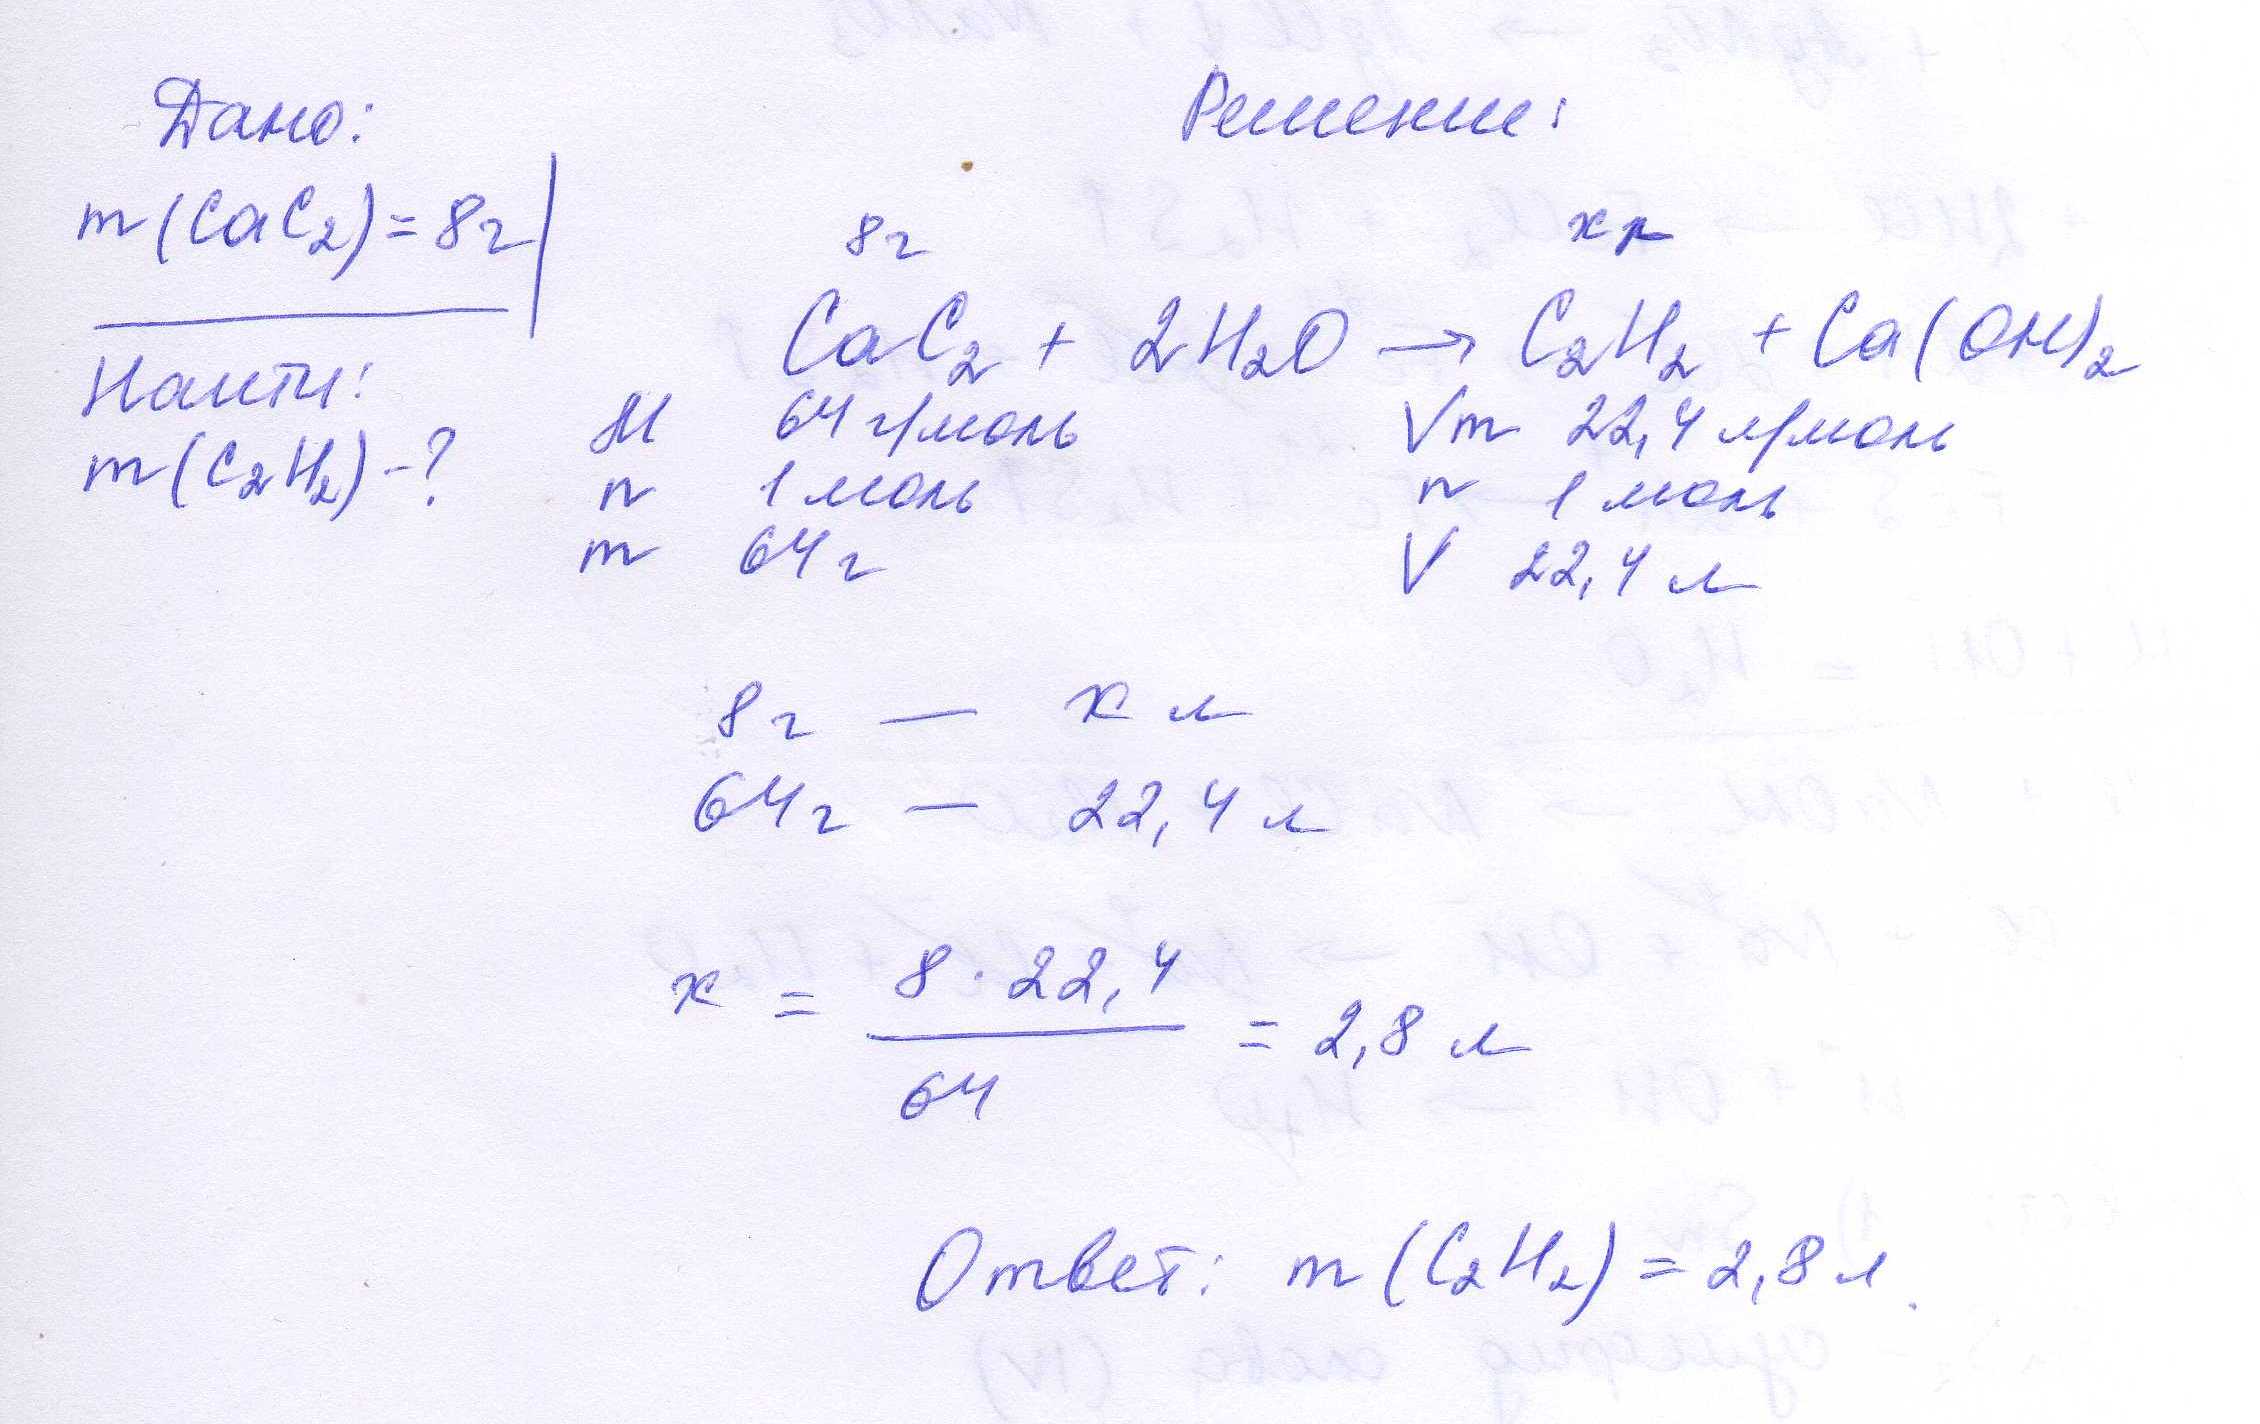 Дано:
m(CaC₂)=8г
Найти:
m(C₂H₂)-?
Решение:
8г хл
CaC₂ + 2H₂O → C₂H₂ + Ca(OH)₂
M 64 г/моль Vm 22,4 л/моль
n 1 моль n 1 моль
m 64 г V 22,4 л
8г — х л
64г — 22,4 л
x = 8 · 22,4 / 64 = 2,8 л
Ответ: m(C₂H₂) = 2,8 л.